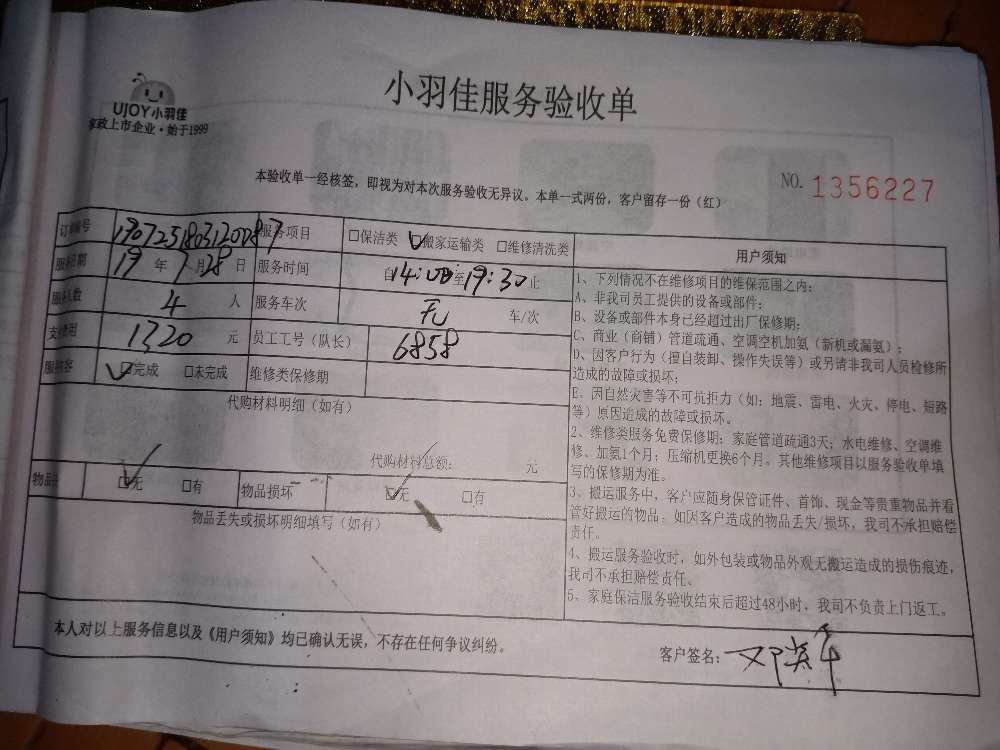 UJOY小羽佳
家政上市企业·始于1999
小羽佳服务验收单
本验收单一经核签，即视为对本次服务验收无异议。本单一式两份，客户留存一份（红）
NO. 1356227
订单编号 服务项目 □保洁类 □搬家运输类 □维修清洗类
服务日期 19 年 7 月 28 日 服务时间 自14:00至19:30止
服务人数 4 人 服务车次 车/次
支付费用 1320 元 员工工号（队长） 6858
服务内容 □完成 □未完成 维修类保修期
代购材料明细（如有）
代购材料总额： 元
物品 □无 □有 物品损坏 □无 □有
物品丢失或损坏明细填写（如有）
用户须知
1、下列情况不在维修项目的维保范围之内：
A、非我司员工提供的设备或部件；
B、设备或部件本身已经超过出厂保修期；
C、商业（商铺）管道疏通、空调空机加氨（新机或漏氨）；
D、因客户行为（擅自装卸、操作失误等）或另请非我司人员检修所
造成的故障或损坏；
E、因自然灾害等不可抗拒力（如：地震、雷电、火灾、停电、短路
等）原因造成的故障或损坏。
2、维修类服务免费保修期：家庭管道疏通3天；水电维修、空调维
修、加氨1个月；压缩机更换6个月。其他维修项目以服务验收单填
写的保修期为准。
3、搬运服务中，客户应随身保管证件、首饰、现金等贵重物品并看
管好搬运的物品。如因客户造成的物品丢失/损坏，我司不承担赔偿
责任。
4、搬运服务验收时，如外包装或物品外观无搬运造成的损伤痕迹，
我司不承担赔偿责任。
5、家庭保洁服务验收结束后超过48小时，我司不负责上门返工。
本人对以上服务信息以及《用户须知》均已确认无误，不存在任何争议纠纷。
客户签名：